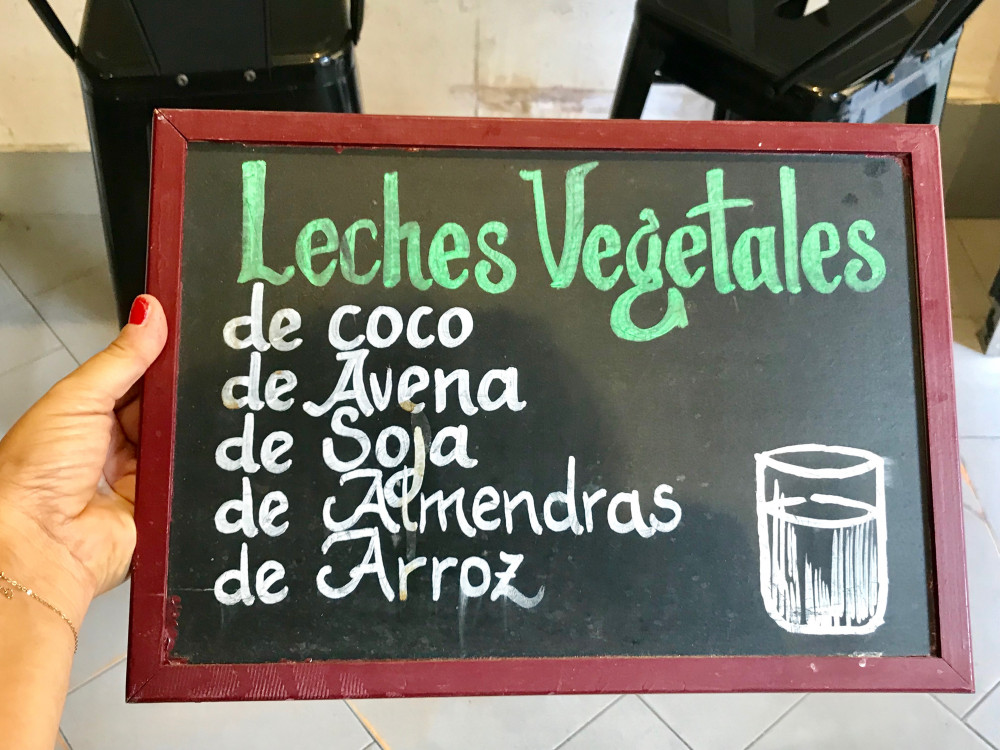 Leches Vegetales
de coco
de Avena
de Soja
de Almendras
de Arroz